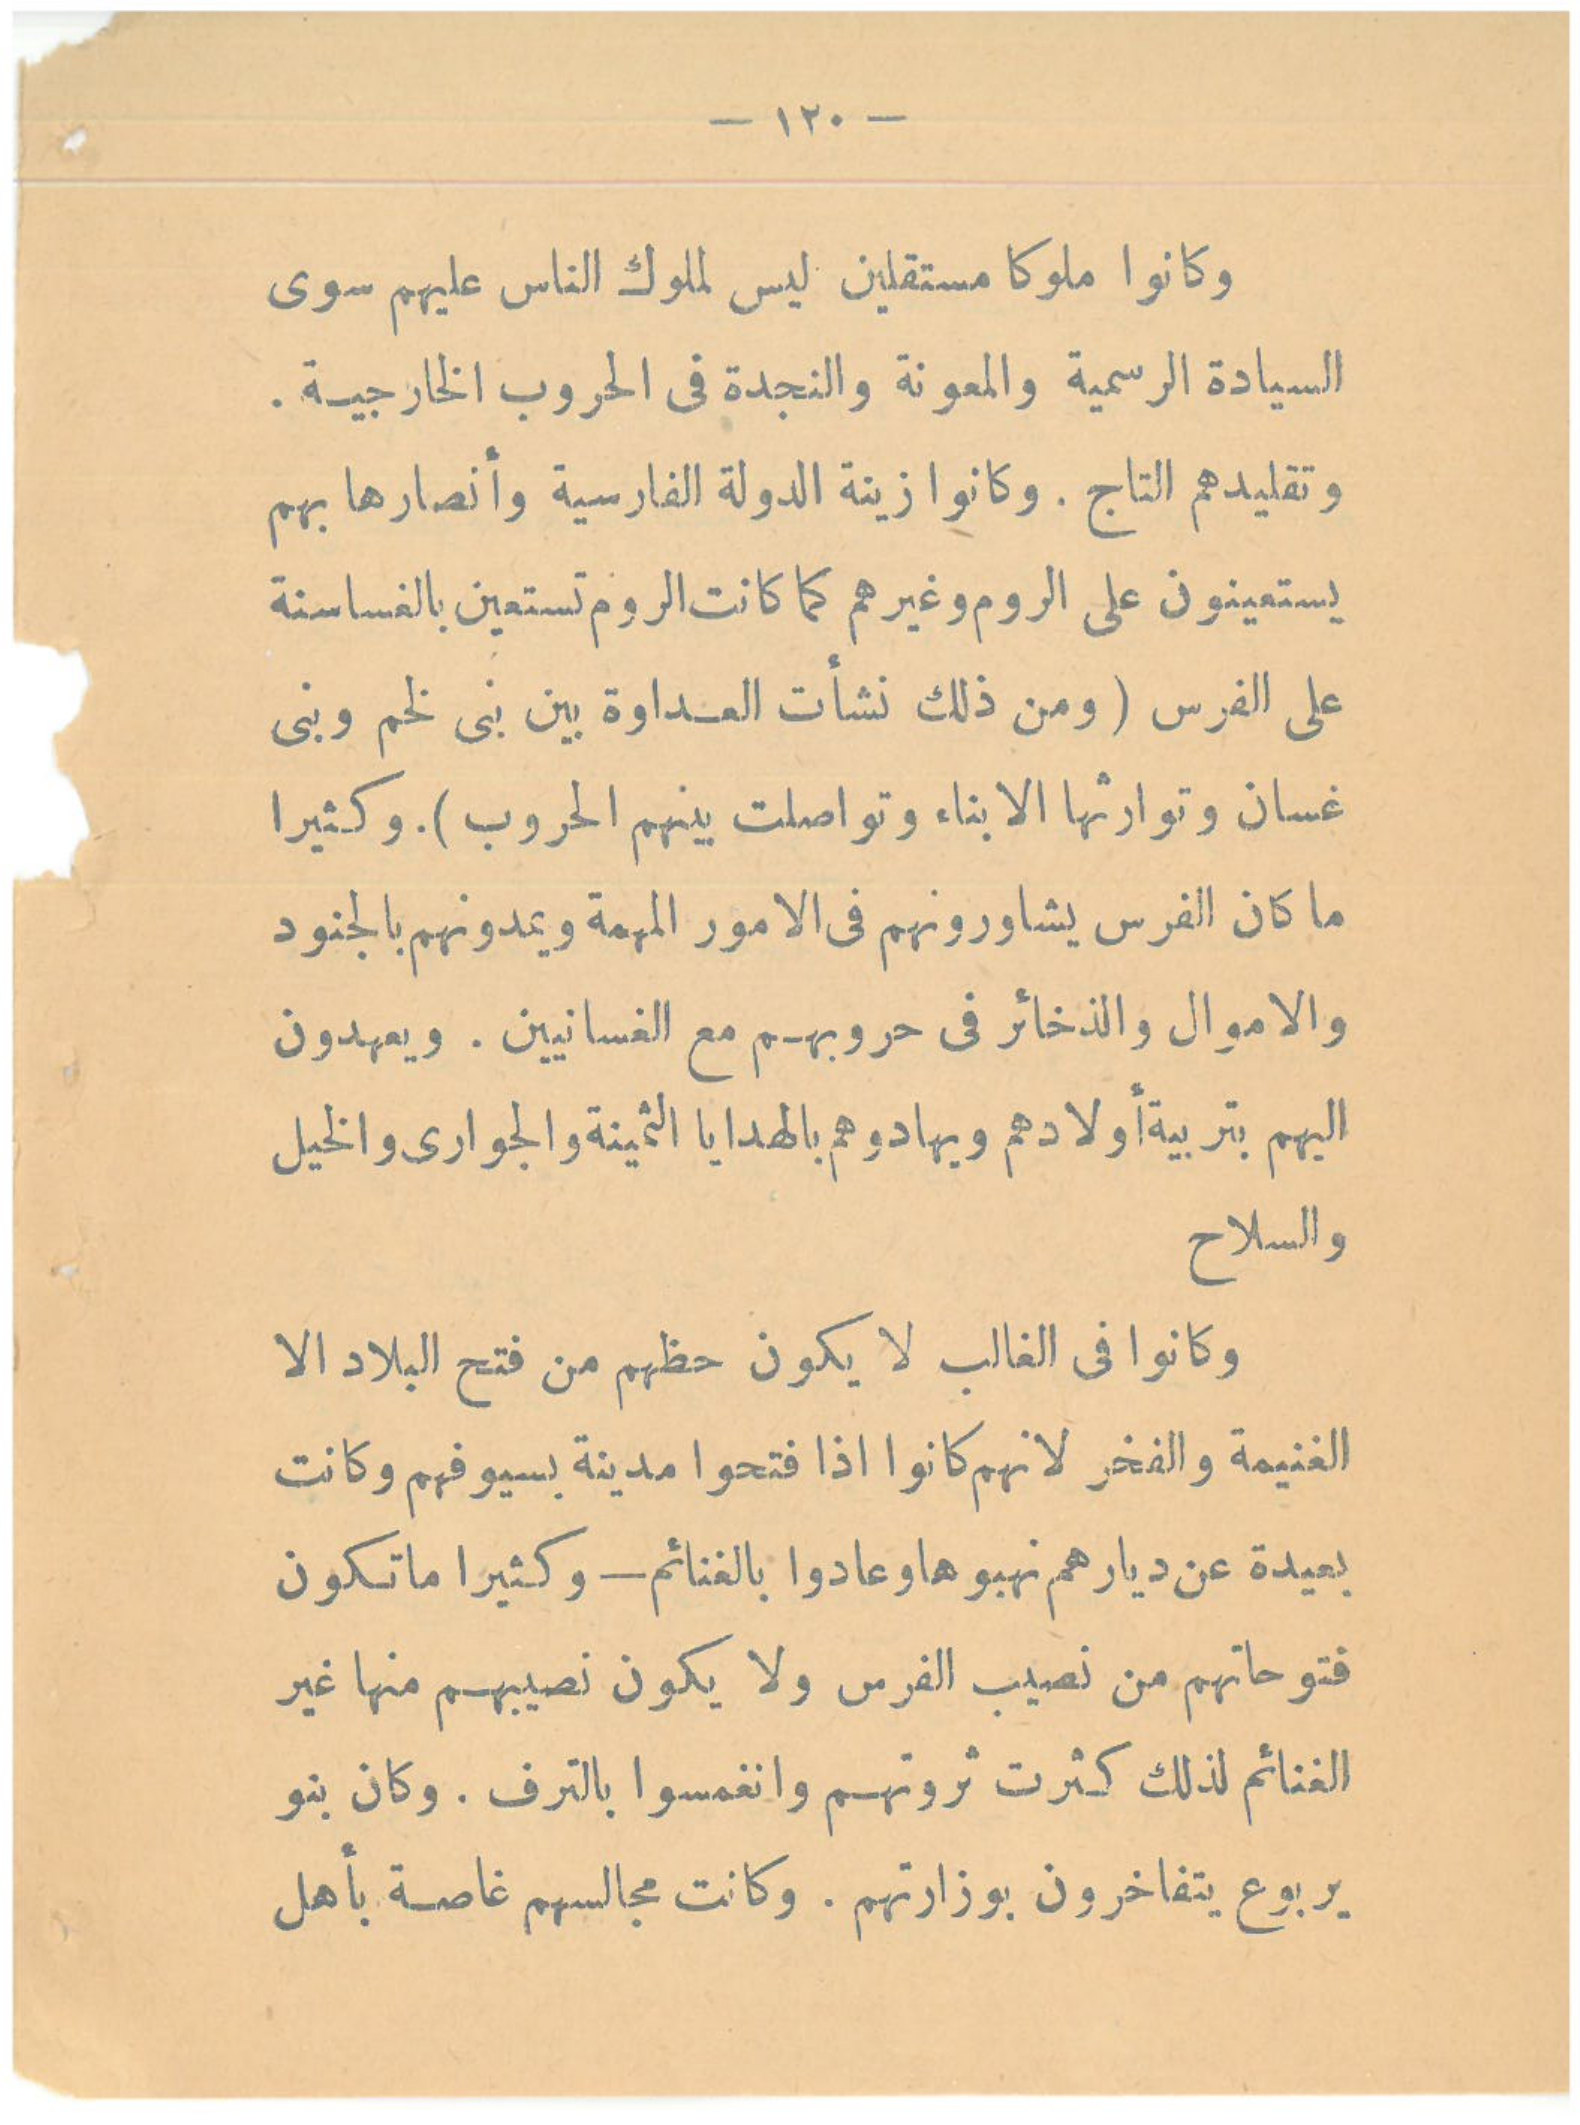 — ١٢٠ —
وكانوا ملوكا مستقلين ليس لملوك الناس عليهم سوى
السيادة الرسمية والمعونة والنجدة فى الحروب الخارجية .
وتقليدهم التاج . وكانوا زينة الدولة الفارسية وأنصارها بهم
يستعينون على الروم وغيرهم كما كانت الروم تستعين بالغساسنة
على الفرس ( ومن ذلك نشأت العداوة بين بنى لخم وبنى
غسان وتوارثها الابناء وتواصلت بينهم الحروب ). وكثيرا
ما كان الفرس يشاورونهم فى الامور المهمة ويمدونهم بالجنود
والاموال والذخائر فى حروبهم مع الغسانيين . ويعهدون
اليهم بتربية أولادهم ويهادوهم بالهدايا الثمينة والجوارى والخيل
والسلاح
وكانوا فى الغالب لا يكون حظهم من فتح البلاد الا
الغنيمة والفخر لانهم كانوا اذا فتحوا مدينة بسيوفهم وكانت
بعيدة عن ديارهم نهبوها وعادوا بالغنائم — وكثيرا ما تكون
فتوحاتهم من نصيب الفرس ولا يكون نصيبهم منها غير
الغنائم لذلك كثرت ثروتهم وانغمسوا بالترف . وكان بنو
يربوع يتفاخرون بوزارتهم . وكانت مجالسهم غاصة بأهل